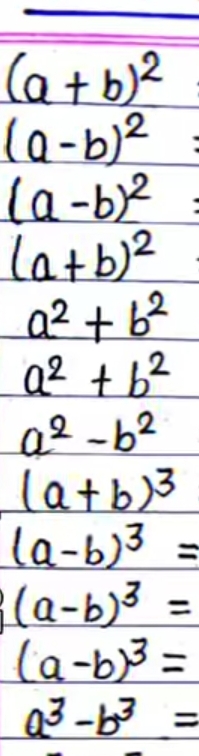 (a + b)² =
(a - b)² =
(a - b)² =
(a + b)²
a² + b²
a² + b²
a² - b²
(a + b)³
(a - b)³ =
(a - b)³ =
(a - b)³ =
a³ - b³ =